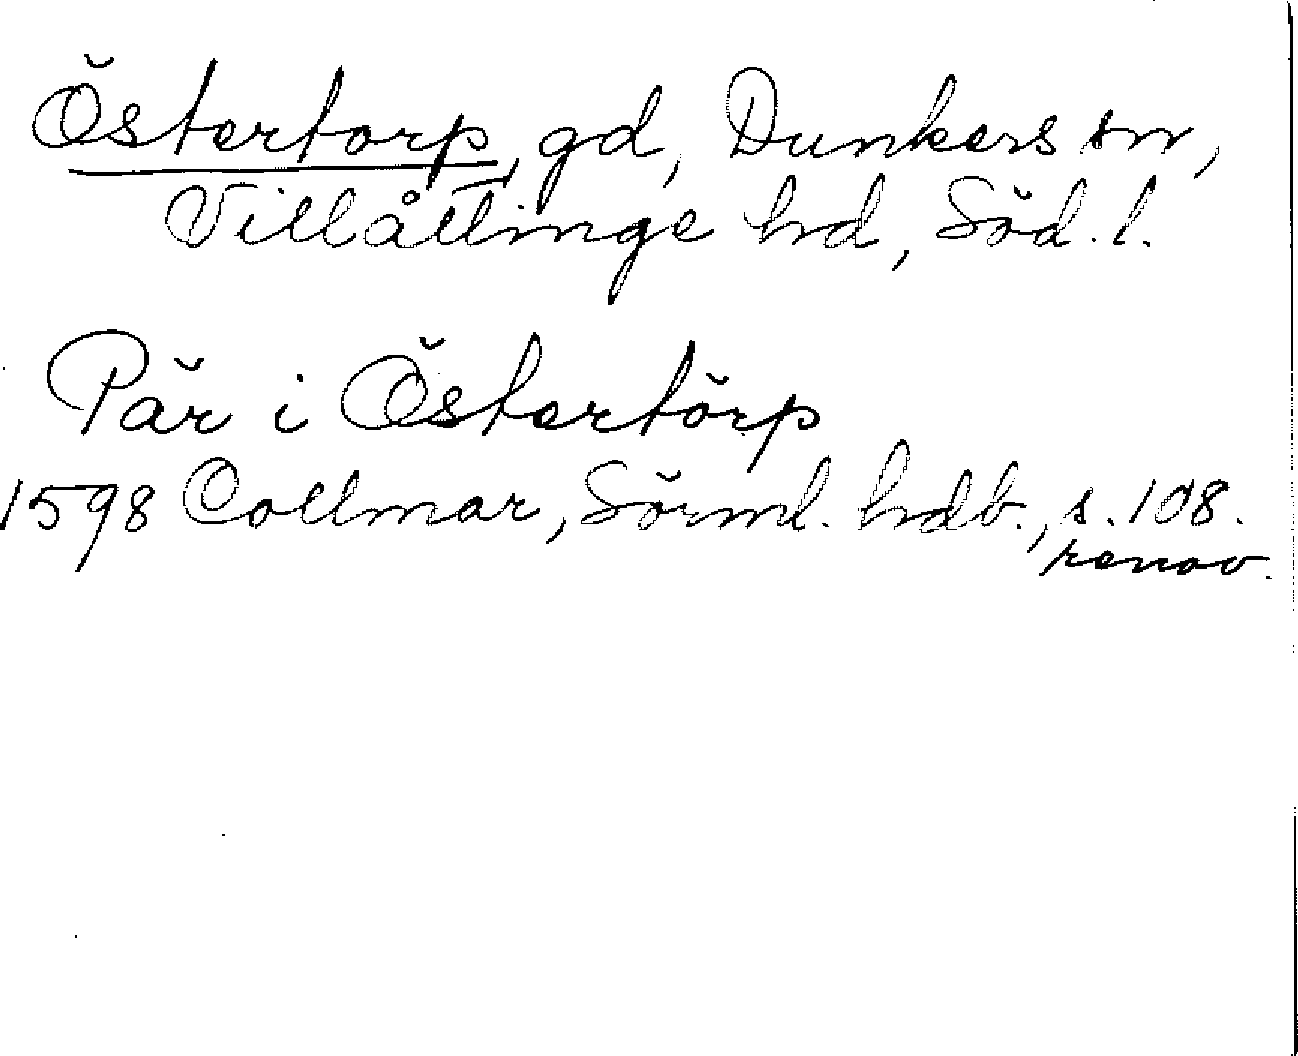 Östertorp, gd, Dunkers sn,
Villåttinge hd, Söd. l.
Pär i Östertörp
1598 Collmar, Sörml. hdb., s. 108.
renov.